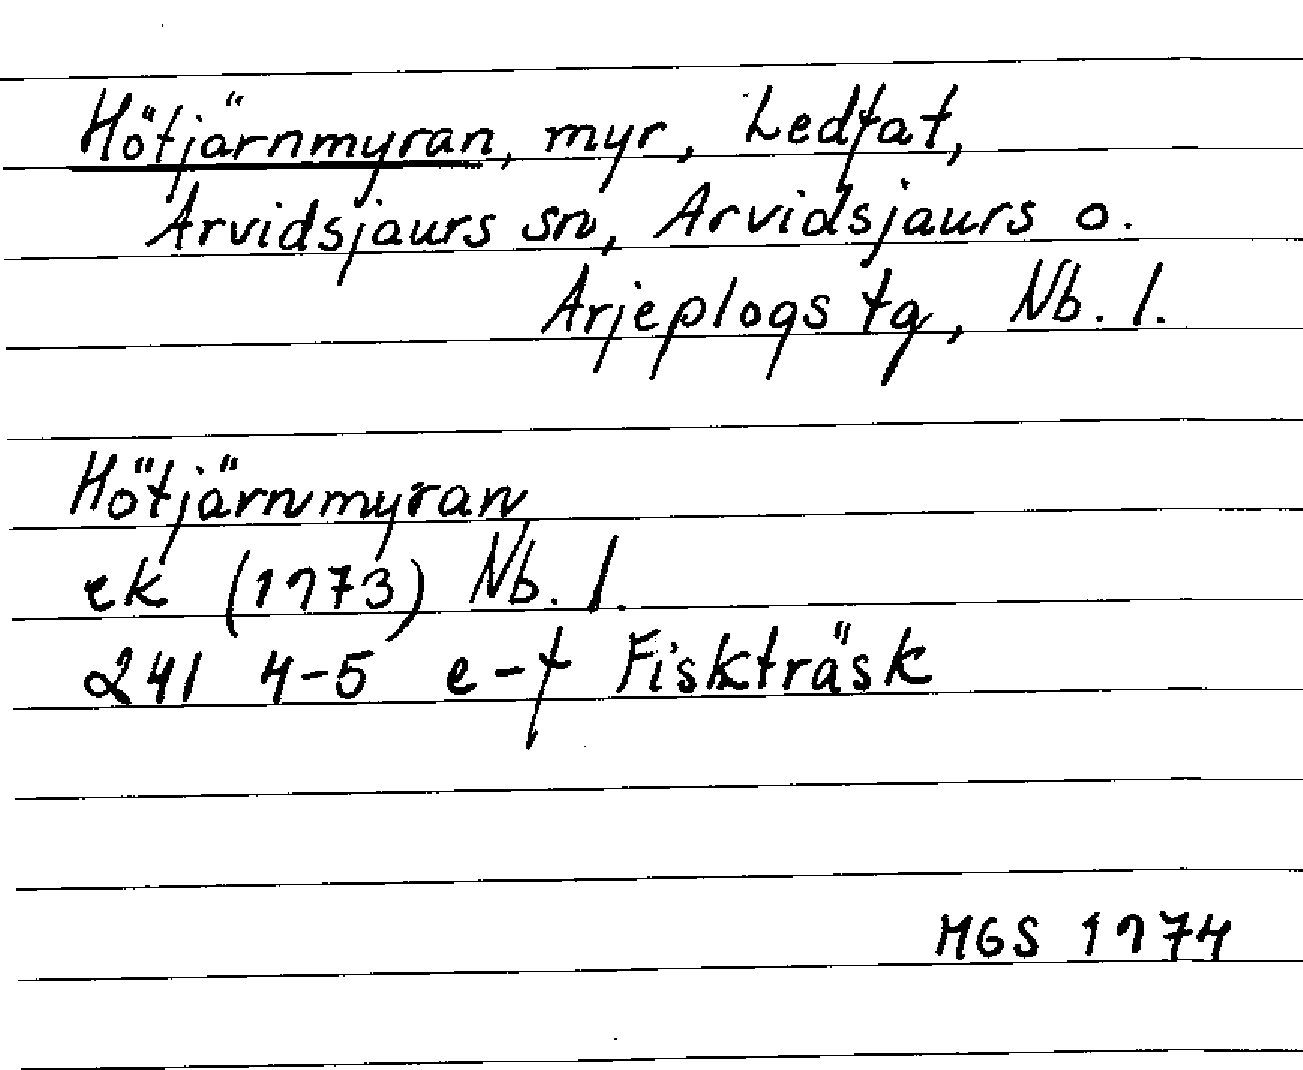 Hötjärnmyran, myr, Ledfat,
Arvidsjaurs sn, Arvidsjaurs o.
Arjeplogs tg, Nb. l.
Hötjärnmyran
ek (1973) Nb. l.
24I 4-5 e-f Fiskträsk
MGS 1974